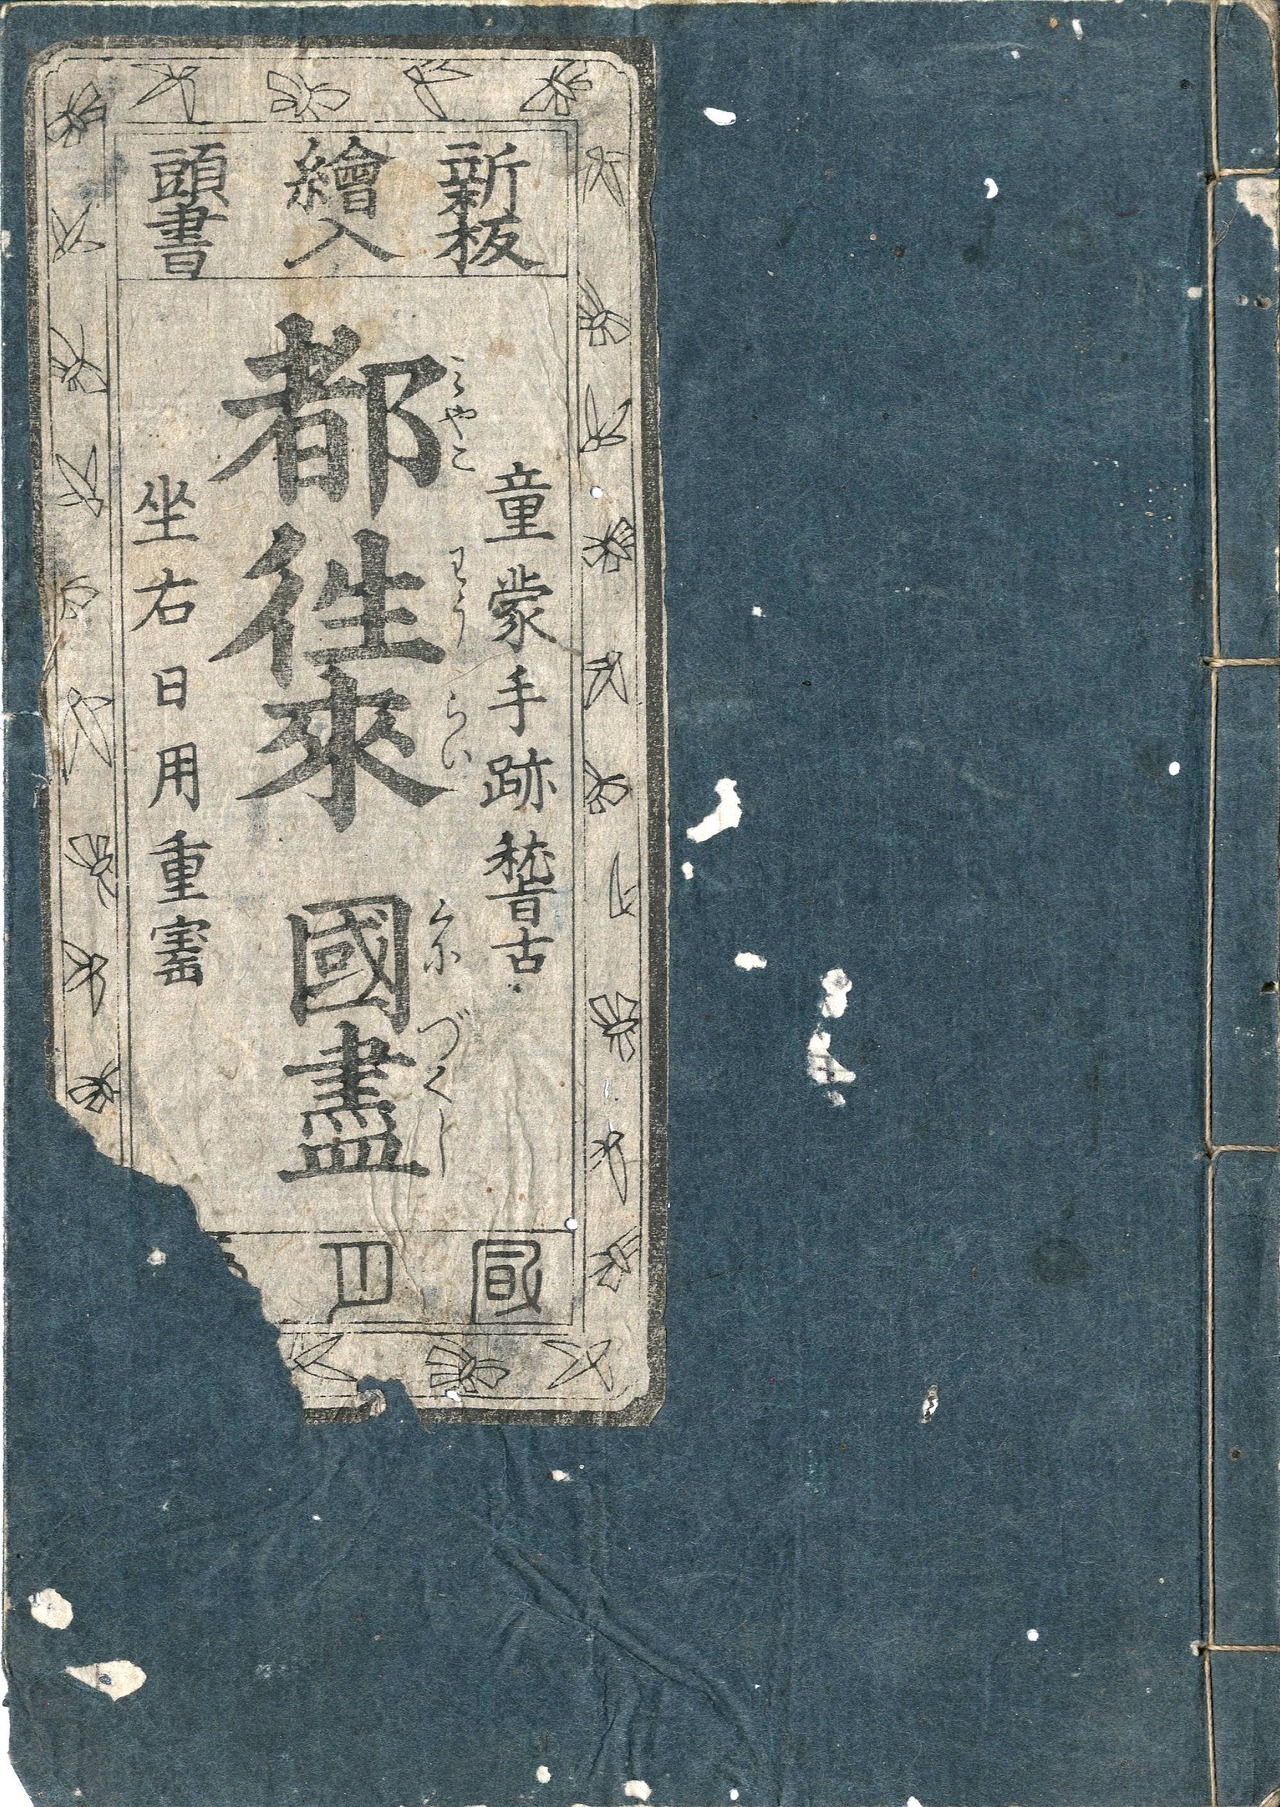 新板
繪入
頭書
童蒙手跡稽古
みやこ
わうらい
くにづくし
都徃來
國盡
坐右日用重寳